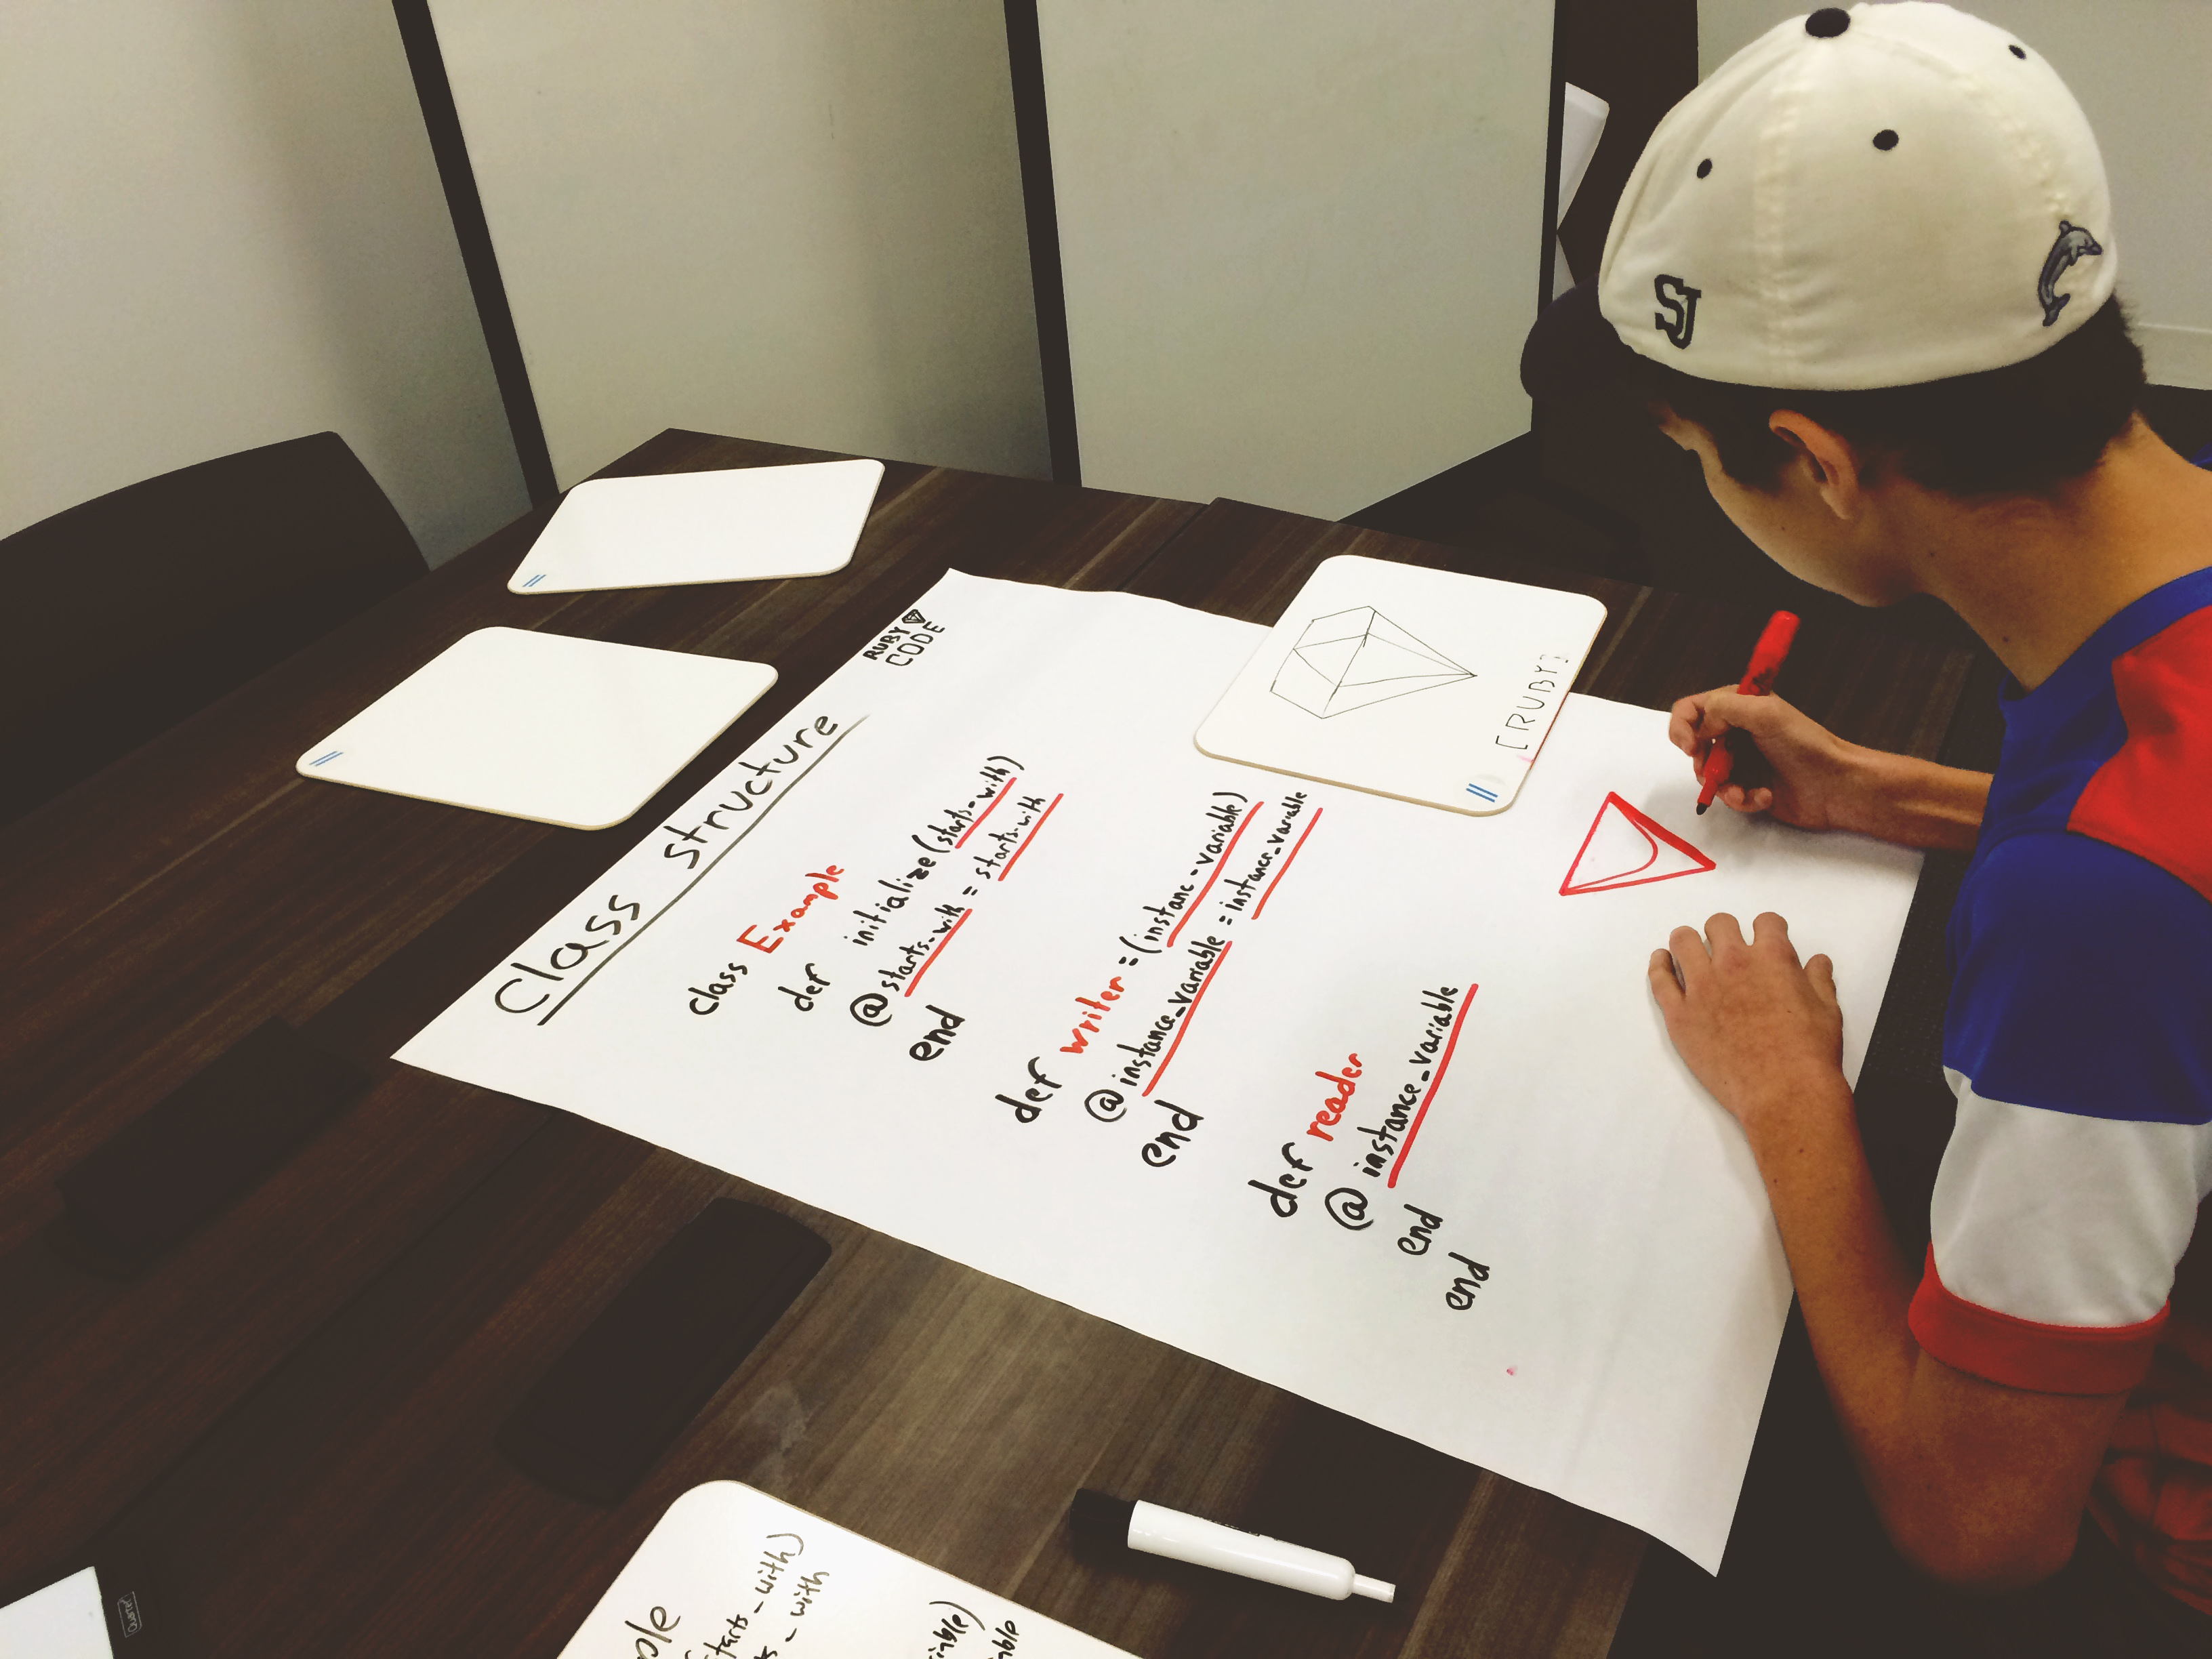 RUBY
CODE
Class structure
class Example
def initialize(starts-with)
@starts-with = starts-with
end
def writer=(instanc-variable)
@instance_variable = instance_variable
end
def reader
@instance_variable
end
end
[RUBY]
SJ
ple
starts-with)
s-with
iable)
able
Quartet